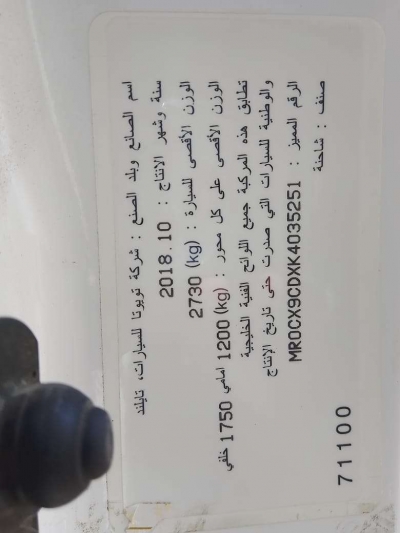 اسم الصانع وبلد الصنع : شركة تويوتا للسيارات، تايلند
سنة وشهر الانتاج : 2018.10
الوزن الأقصى للسيارة : (kg) 2730
الوزن الأقصى على كل محور : (kg) 1200 امامي 1750 خلفي
تطابق هذه المركبة جميع اللوائح الفنية الخليجية
والوطنية للسيارات التي صدرت حتى تاريخ الإنتاج
الرقم المميز : MR0CX9CDXK4035251
صنف : شاحنة
71100